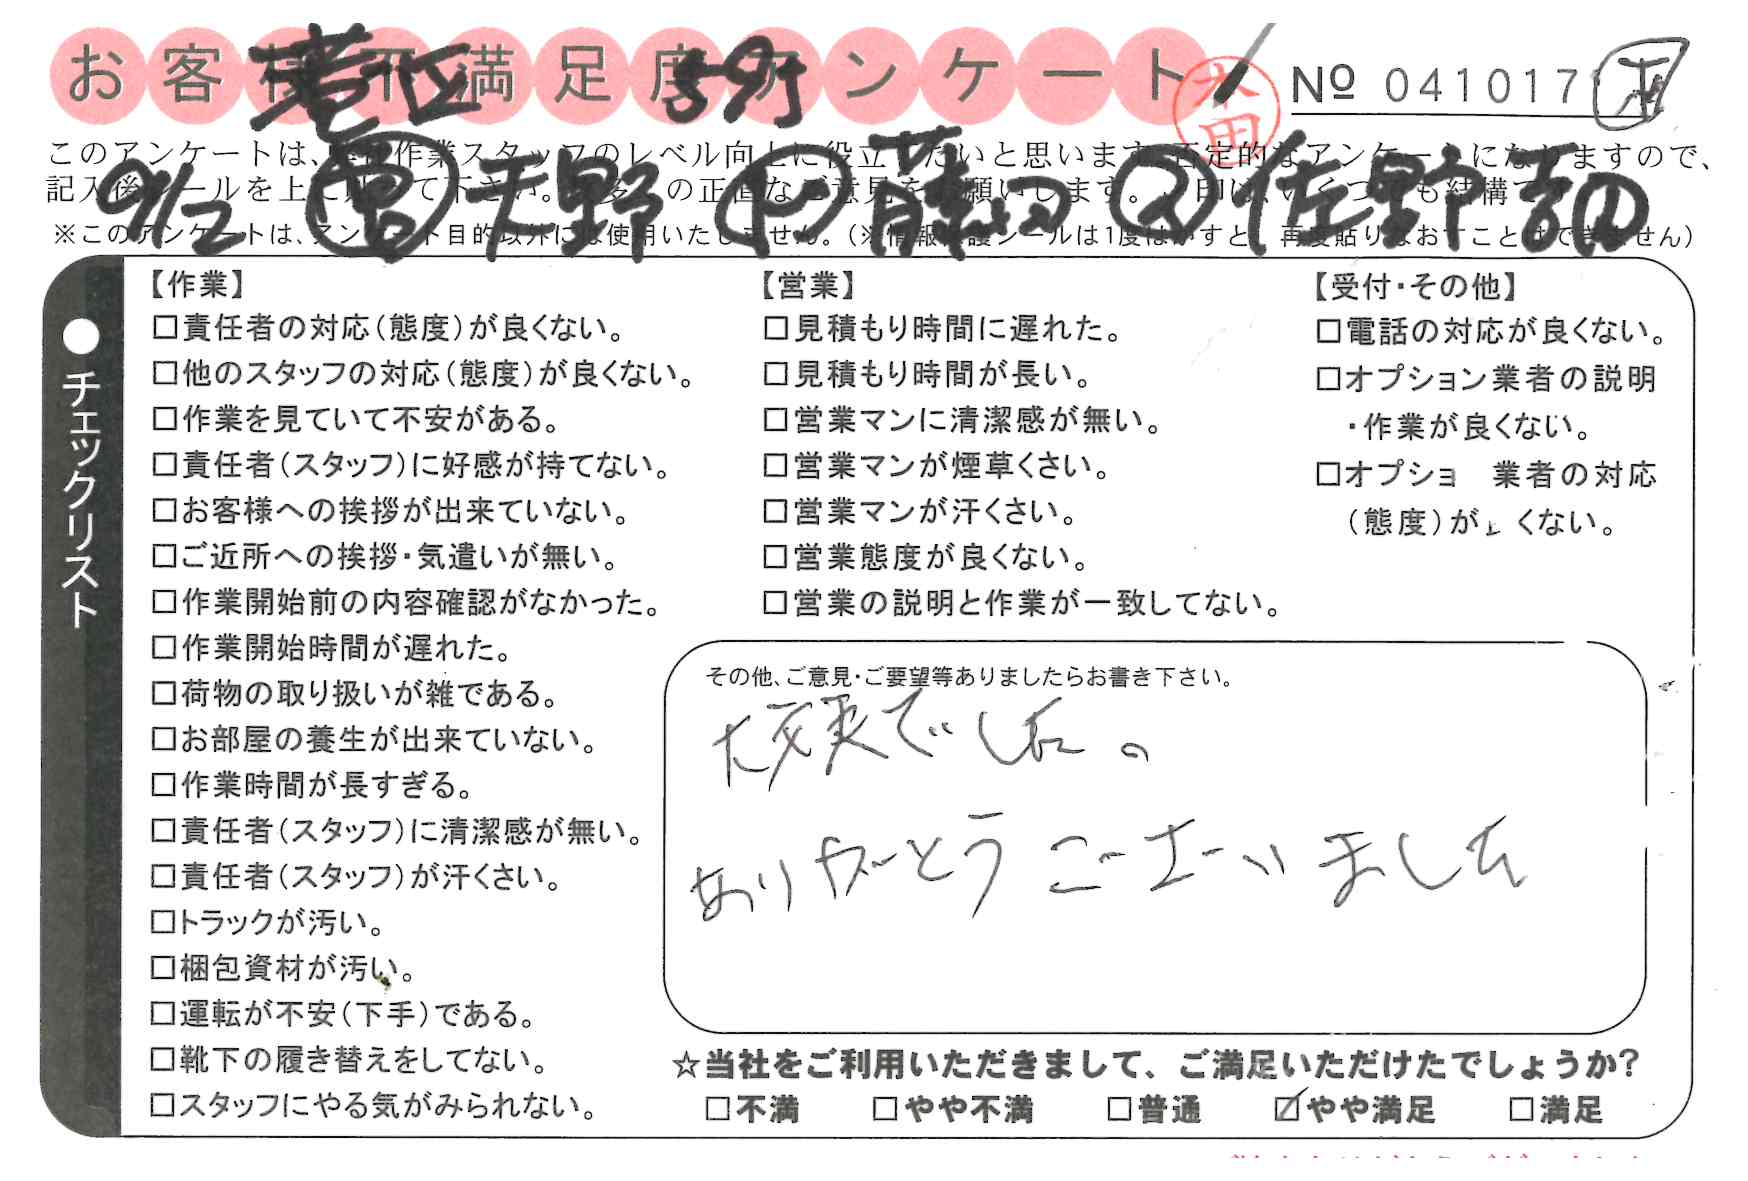 お客様不満足度アンケート
太田
Nº 041017
港区
このアンケートは、作業スタッフのレベル向上に役立てたいと思います。否定的なアンケートになりますので、
※このアンケートは、アンケート目的以外には使用いたしません。(※情報保護シールは1度はがすと、再度貼りなおすことはできません)
9/2 営 天野 P 藤田 ス 佐野 吉田
チェックリスト
【作業】
□責任者の対応(態度)が良くない。
□他のスタッフの対応(態度)が良くない。
□作業を見ていて不安がある。
□責任者(スタッフ)に好感が持てない。
□お客様への挨拶が出来ていない。
□ご近所への挨拶・気遣いが無い。
□作業開始前の内容確認がなかった。
□作業開始時間が遅れた。
□荷物の取り扱いが雑である。
□お部屋の養生が出来ていない。
□作業時間が長すぎる。
□責任者(スタッフ)に清潔感が無い。
□責任者(スタッフ)が汗くさい。
□トラックが汚い。
□梱包資材が汚い。
□運転が不安(下手)である。
□靴下の履き替えをしてない。
□スタッフにやる気がみられない。
【営業】
□見積もり時間に遅れた。
□見積もり時間が長い。
□営業マンに清潔感が無い。
□営業マンが煙草くさい。
□営業マンが汗くさい。
□営業態度が良くない。
□営業の説明と作業が一致してない。
【受付・その他】
□電話の対応が良くない。
□オプション業者の説明
・作業が良くない。
□オプショ 業者の対応
(態度)が くない。
その他、ご意見・ご要望等ありましたらお書き下さい。
大丈夫でした。
ありがとうございました
☆当社をご利用いただきまして、ご満足いただけたでしょうか?
□不満 □やや不満 □普通 ☑やや満足 □満足